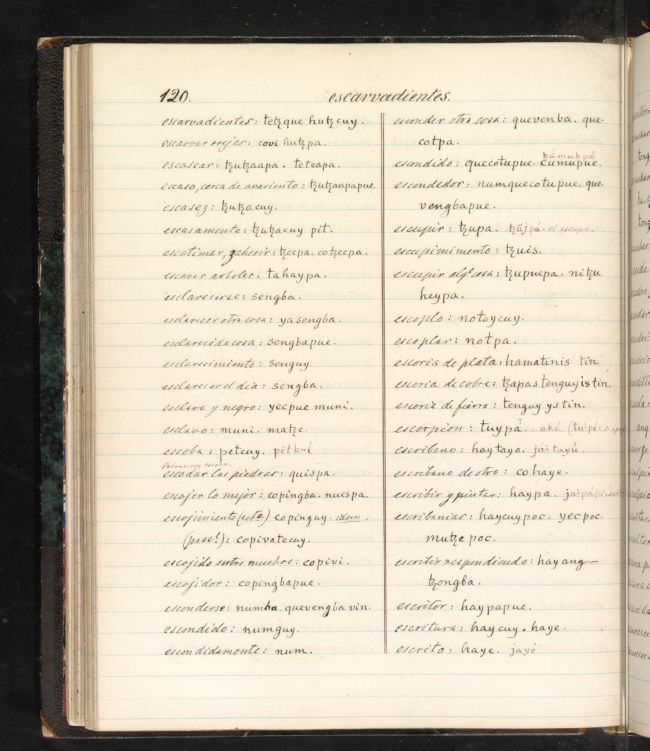 120.
escarvadientes.
escarvadientes: teꜩque huꜩcuy.
escarvar orejas: covi huꜩpa.
escasear: ꜩuꜩaapa. teteapa.
escaso, cerca de avariento: ꜩuꜩaapapue.
escasez: ꜩuꜩacuy.
escasamente: ꜩuꜩacuy pit.
escatimar, zaherir: ꜩecpa. coꜩecpa.
escavar arboles: tahaypa.
esclarecerse: sengba.
esclarecer otra cosa: yasengba.
esclarecida cosa: sengbapue.
esclarecimiento: senguy.
esclarecer el dia: sengba.
esclavo y negro: yecpue muni.
esclavo: muni. maꜩe.
escoba: petcuy. petkuí
escodar las piedras: quispa.
escojer lo mejor: copingba. nucspa.
escojimiento (este) copinguy.
(pass!): copivatcuy.
escojido entre muchos: copivi.
escojidor: copingbapue.
esconderse: numba. quevengba vin.
escondido: numguy.
escondidamente: num.
esconder otra cosa: quevenba. que-
cotpa.
kámukpö
escondido: quecotupue. cumupue.
escondedor: numquecotupue. que-
vengbapue.
escupir: ꜩupa.
escupimimento: ꜩuis.
escupir algª cosa: ꜩupuepa. niꜩu
heypa.
escoplo: notoycuy.
escoplar: notpa.
escoria de plata: hamatinis tin.
escoria de cobre: ꜩapastenguyis tin.
escoria de fierro: tenguy ys tin.
escorpion: tuypa. aké
escribano: haytayo. jáitayú.
escribano de otro: cohaye.
escribir y pintar: haypa. jaipá
escribanias: haycuypoc. yecpoc.
muꜩe poc.
escribir respondiendo: hayang-
ꜩongba.
escritor: haypapue.
escritura: haycuy. haye.
escrito: haye. jayé